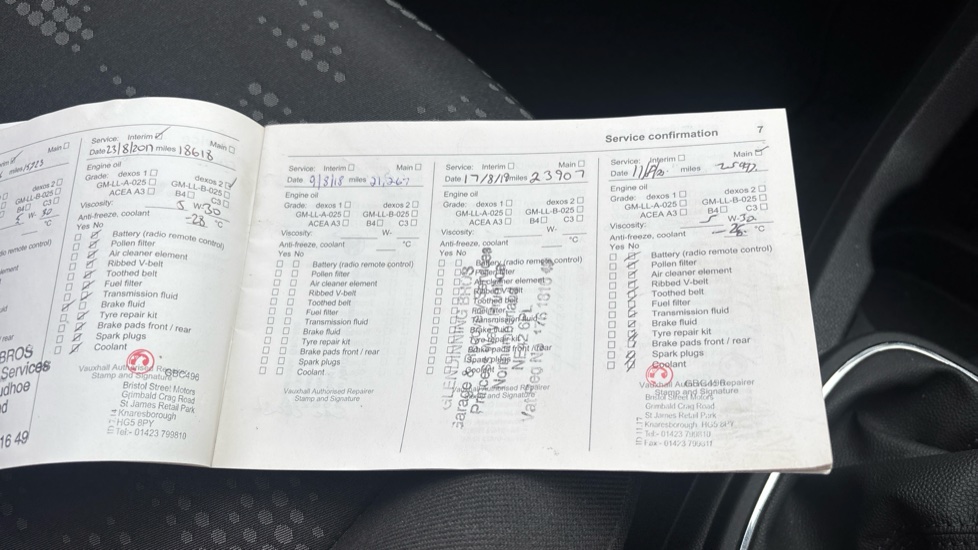 miles 15723
dexos 2
GM-LL-B-025
B4 C3
5 W- 30
°C
radio remote control)
BROS
Services
udhoe
16 49
Service: Interim Main
Date 23/8/2017 miles 18618
Engine oil
Grade: dexos 1 dexos 2
GM-LL-A-025 GM-LL-B-025
ACEA A3 B4 C3
Viscosity: 5 W-30
Anti-freeze, coolant -28 °C
Yes No
Battery (radio remote control)
Pollen filter
Air cleaner element
Ribbed V-belt
Toothed belt
Fuel filter
Transmission fluid
Brake fluid
Tyre repair kit
Brake pads front / rear
Spark plugs
Coolant
Vauxhall Authorised Repairer
Stamp and Signature
GBC496
Bristol Street Motors
Grimbald Crag Road
St James Retail Park
Knaresborough
HG5 8PY
Tel:- 01423 799810
Service confirmation 7
Service: Interim Main
Date 9/8/18 miles 21,267
Engine oil
Grade: dexos 1 dexos 2
GM-LL-A-025 GM-LL-B-025
ACEA A3 B4 C3
Viscosity: W-
Anti-freeze, coolant °C
Yes No
Battery (radio remote control)
Pollen filter
Air cleaner element
Ribbed V-belt
Toothed belt
Fuel filter
Transmission fluid
Brake fluid
Tyre repair kit
Brake pads front / rear
Spark plugs
Coolant
Vauxhall Authorised Repairer
Stamp and Signature
Service: Interim Main
Date 17/8/19 miles 23907
Engine oil
Grade: dexos 1 dexos 2
GM-LL-A-025 GM-LL-B-025
ACEA A3 B4 C3
Viscosity: W-
Anti-freeze, coolant °C
Yes No
Battery (radio remote control)
Pollen filter
Air cleaner element
Ribbed V-belt
Toothed belt
Fuel filter
Transmission fluid
Brake fluid
Tyre repair kit
Brake pads front / rear
Spark plugs
Coolant
Vauxhall Authorised Repairer
Stamp and Signature
Service: Interim Main
Date miles
Engine oil
Grade: dexos 1 dexos 2
GM-LL-A-025 GM-LL-B-025
ACEA A3 B4 C3
Viscosity: 5 W-30
Anti-freeze, coolant °C
Yes No
Battery (radio remote control)
Pollen filter
Air cleaner element
Ribbed V-belt
Toothed belt
Fuel filter
Transmission fluid
Brake fluid
Tyre repair kit
Brake pads front / rear
Spark plugs
Coolant
Vauxhall Authorised Repairer
Stamp and Signature
GBC496
Bristol Street Motors
Grimbald Crag Road
St James Retail Park
Knaresborough HG5 8PY
Tel:- 01423 799810